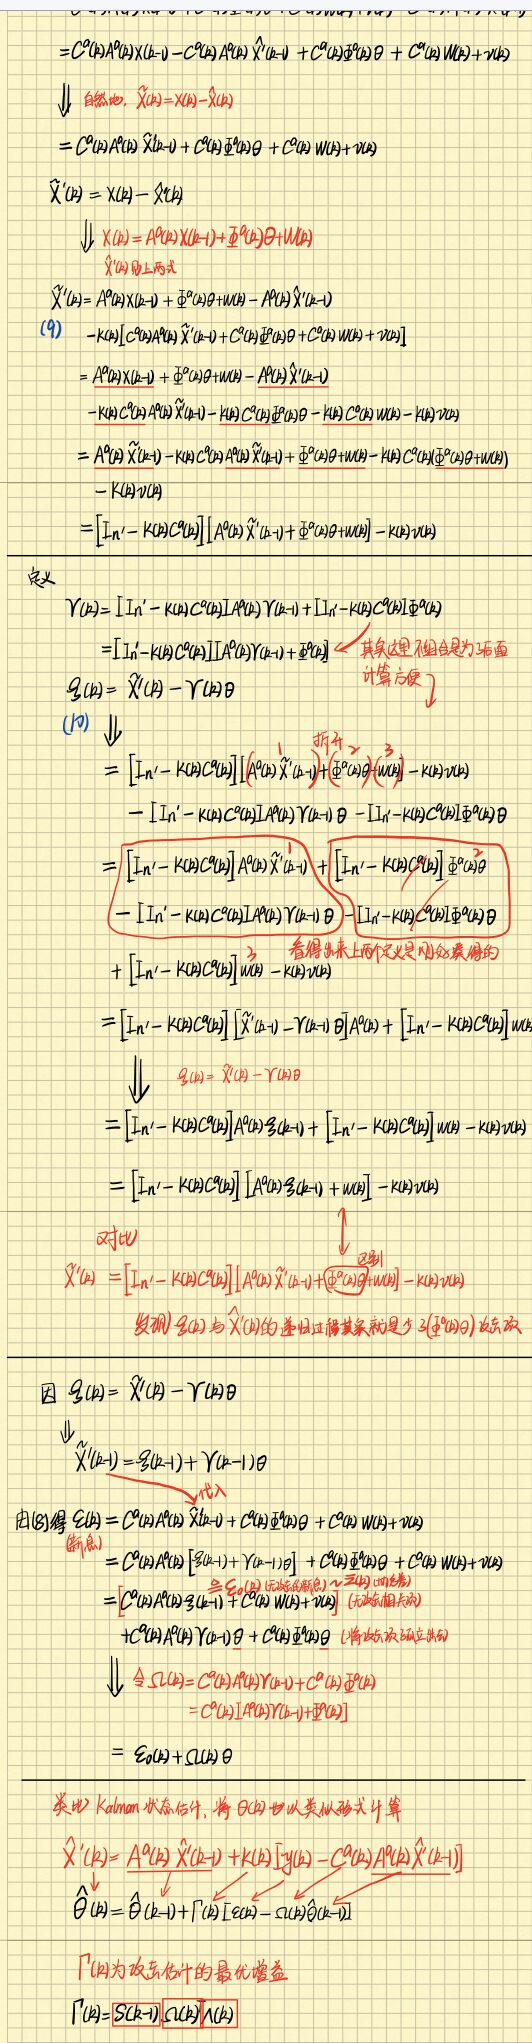 =Cᵃ(k)Aᵃ(k)X(k-1)-Cᵃ(k)Aᵃ(k)X̂'(k-1)+Cᵃ(k)Φᵃ(k)θ+Cᵃ(k)W(k)+v(k)
⇓ 自然地, X̃(k)=X(k)-X̂(k)
=Cᵃ(k)Aᵃ(k)X̃'(k-1)+Cᵃ(k)Φᵃ(k)θ+Cᵃ(k)W(k)+v(k)
X̃'(k)=X(k)-X̂'(k)
⇓ X(k)=Aᵃ(k)X(k-1)+Φᵃ(k)θ+W(k)
X̂'(k)用上两式
X̃'(k)=Aᵃ(k)X(k-1)+Φᵃ(k)θ+w(k)-Aᵃ(k)X̂'(k-1)
(9) -K(k)[Cᵃ(k)Aᵃ(k)X̃'(k-1)+Cᵃ(k)Φᵃ(k)θ+Cᵃ(k)W(k)+v(k)]
=Aᵃ(k)X(k-1)+Φᵃ(k)θ+w(k)-Aᵃ(k)X̂'(k-1)
-K(k)Cᵃ(k)Aᵃ(k)X̃'(k-1)-K(k)Cᵃ(k)Φᵃ(k)θ-K(k)Cᵃ(k)w(k)-K(k)v(k)
=Aᵃ(k)X̃'(k-1)-K(k)Cᵃ(k)Aᵃ(k)X̃'(k-1)+Φᵃ(k)θ+w(k)-K(k)Cᵃ(k)(Φᵃ(k)θ+w(k))
-K(k)v(k)
=[In'-K(k)Cᵃ(k)][Aᵃ(k)X̃'(k-1)+Φᵃ(k)θ+w(k)]-K(k)v(k)
定义
Υ(k)=[In'-K(k)Cᵃ(k)]Aᵃ(k)Υ(k-1)+[In'-K(k)Cᵃ(k)]Φᵃ(k)
=[In'-K(k)Cᵃ(k)][Aᵃ(k)Υ(k-1)+Φᵃ(k)] 其实这里不组合是为了后面
计算方便
ξ(k)=X̃'(k)-Υ(k)θ
(10) ⇓ 拆开
=[In'-K(k)Cᵃ(k)][(Aᵃ(k)X̃'(k-1))¹+(Φᵃ(k)θ)²+(w(k))³]-K(k)v(k)
-[In'-K(k)Cᵃ(k)]Aᵃ(k)Υ(k-1)θ-[In'-K(k)Cᵃ(k)]Φᵃ(k)θ
=[In'-K(k)Cᵃ(k)]Aᵃ(k)X̃'(k-1) 1 +[In'-K(k)Cᵃ(k)]Φᵃ(k)θ 2
-[In'-K(k)Cᵃ(k)]Aᵃ(k)Υ(k-1)θ-[In'-K(k)Cᵃ(k)]Φᵃ(k)θ
看得出来上两个定义是
+[In'-K(k)Cᵃ(k)]w(k) 3 -K(k)v(k)
=[In'-K(k)Cᵃ(k)][X̃'(k-1)-Υ(k-1)θ]Aᵃ(k)+[In'-K(k)Cᵃ(k)]w(k)
⇓ ξ(k)=X̃'(k)-Υ(k)θ
=[In'-K(k)Cᵃ(k)]Aᵃ(k)ξ(k-1)+[In'-K(k)Cᵃ(k)]w(k)-K(k)v(k)
=[In'-K(k)Cᵃ(k)][Aᵃ(k)ξ(k-1)+w(k)]-K(k)v(k)
对比 区别
X̃'(k)=[In'-K(k)Cᵃ(k)][Aᵃ(k)X̃'(k-1)+Φᵃ(k)θ+w(k)]-K(k)v(k)
发现ξ(k)与X̂'(k)的递归过程其实就是少了(Φᵃ(k)θ)故障项
因 ξ(k)=X̃'(k)-Υ(k)θ
⇓
X̃'(k-1)=ξ(k-1)+Υ(k-1)θ
代入
由(8)得 ε(k)=Cᵃ(k)Aᵃ(k)X̃'(k-1)+Cᵃ(k)Φᵃ(k)θ+Cᵃ(k)W(k)+v(k)
(新息) =Cᵃ(k)Aᵃ(k)[ξ(k-1)+Υ(k-1)θ]+Cᵃ(k)Φᵃ(k)θ+Cᵃ(k)W(k)+v(k)
≜ε₀(k)(无故障的新息)~Σ(k)
=[Cᵃ(k)Aᵃ(k)ξ(k-1)+Cᵃ(k)W(k)+v(k)] (无故障相关项)
+Cᵃ(k)Aᵃ(k)Υ(k-1)θ+Cᵃ(k)Φᵃ(k)θ (将故障项独立出来)
⇓ 令Ω(k)=Cᵃ(k)Aᵃ(k)Υ(k-1)+Cᵃ(k)Φᵃ(k)
=Cᵃ(k)[Aᵃ(k)Υ(k-1)+Φᵃ(k)]
=ε₀(k)+Ω(k)θ
类比 Kalman 状态估计, 将θ(k)也以类似形式计算
X̂'(k)=Aᵃ(k)X̂'(k-1)+K(k)[y(k)-Cᵃ(k)Aᵃ(k)X̂'(k-1)]
θ̂(k)=θ̂(k-1)+Γ(k)[ε(k)-Ω(k)θ̂(k-1)]
Γ(k)为故障估计的最优增益
Γ(k)=S(k-1)Ω(k)Λ(k)